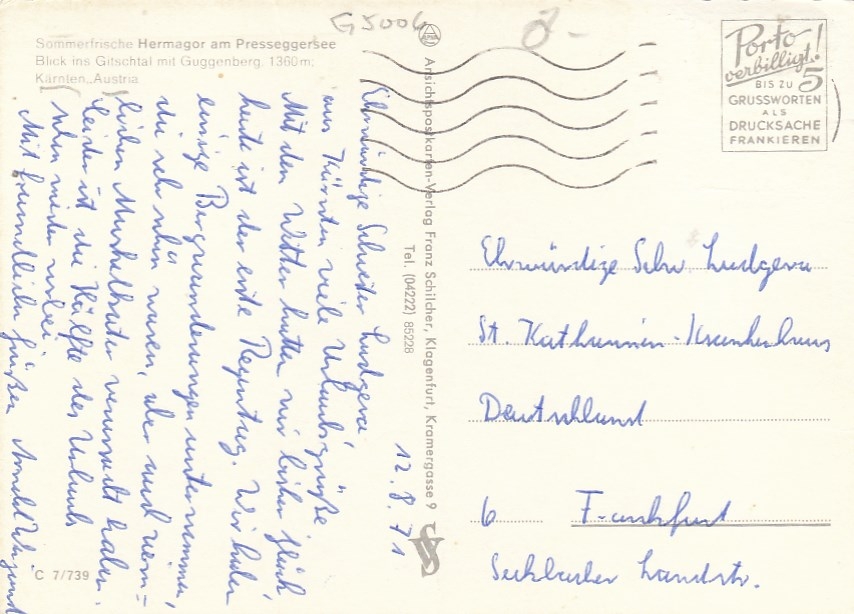 G5006
Sommerfrische Hermagor am Presseggersee
Blick ins Gitschtal mit Guggenberg, 1360m;
Kärnten, Austria
12.8.71
Ehrwürdige Schwester Ludgera,
aus Kärnten viele Urlaubsgrüße
Mit dem Wetter hatten wir bisher Glück
heute ist der erste Regentag. Wir haben
einige Bergwanderungen unternommen,
die sehr schön waren, aber auch ziem=
lichen Muskelkater verursacht haben.
Leider ist die Hälfte des Urlaubs
schon wieder vorbei.
Mit freundlichen Grüßen
C 7/739
Ansichtspostkarten-Verlag Franz Schilcher, Klagenfurt, Kramergasse 9
Tel. (04222) 85228
Porto
verbilligt!
BIS ZU 5
GRUSSWORTEN
ALS
DRUCKSACHE
FRANKIEREN
Ehrwürdige Schw. Ludgera
St. Katharinen-Krankenhaus
Deutschland
6 Frankfurt
Seckbacher Landstr.